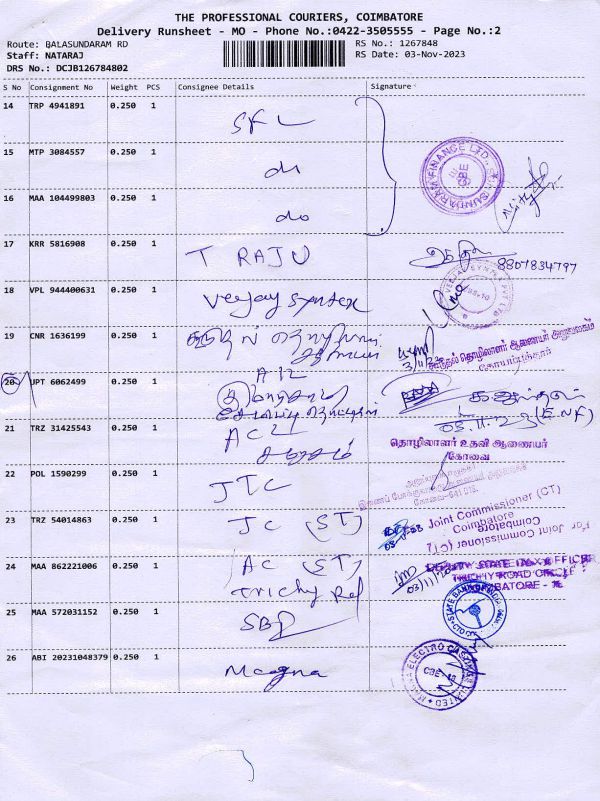 THE PROFESSIONAL COURIERS, COIMBATORE
Delivery Runsheet - MO - Phone No.:0422-3505555 - Page No.:2
Route: BALASUNDARAM RD
RS No.: 1267848
Staff: NATARAJ
RS Date: 03-Nov-2023
DRS No.: DCJB126784802
S No Consignment No Weight PCS Consignee Details Signature
14 TRP 4941891 0.250 1 SFL
15 MTP 3084557 0.250 1 do
SUNDARAM FINANCE LTD., CBE
16 MAA 104499803 0.250 1 do
17 KRR 5816908 0.250 1 T RAJU
8807834797
18 VPL 944400631 0.250 1 Veejay syntex
19 CNR 1636199 0.250 1
கூடுதல் தொழிலாளர் ஆணையர் அலுவலகம்
கோயம்புத்தூர்
20 JPT 6062499 0.250 1
21 TRZ 31425543 0.250 1 ACL
தொழிலாளர் உதவி ஆணையர்
கோவை
22 POL 1590299 0.250 1 JTC
கோவை-641 018.
23 TRZ 54014863 0.250 1 JC (ST)
Joint Commissioner (CT)
Coimbatore
For Joint Commissioner (CT)
Coimbatore
24 MAA 862221006 0.250 1 AC (ST)
Trichy Rd
DEPUTY STATE TAX OFFICER
TRICHY ROAD CIRCLE
COIMBATORE - 18
03/11/
25 MAA 572031152 0.250 1 SBI
STATE BANK OF INDIA
26 ABI 20231048379 0.250 1 Magna
MAGNA ELECTRO CASTINGS LIMITED CBE-18